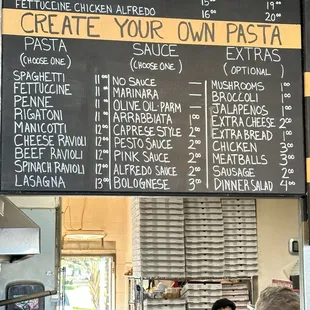 FETTUCCINE CHICKEN ALFREDO 16⁰⁰ 20⁰⁰
CREATE YOUR OWN PASTA
PASTA
(CHOOSE ONE)
SPAGHETTI 11⁰⁰
FETTUCCINE 11⁰⁰
PENNE 11⁰⁰
RIGATONI 11⁰⁰
MANICOTTI 12⁰⁰
CHEESE RAVIOLI 12⁰⁰
BEEF RAVIOLI 12⁰⁰
SPINACH RAVIOLI 12⁰⁰
LASAGNA 13⁰⁰
SAUCE
(CHOOSE ONE)
NO SAUCE —
MARINARA —
OLIVE OIL·PARM —
ARRABBIATA 1⁰⁰
CAPRESE STYLE 2⁰⁰
PESTO SAUCE 2⁰⁰
PINK SAUCE 2⁰⁰
ALFREDO SAUCE 2⁰⁰
BOLOGNESE 3⁰⁰
EXTRAS
(OPTIONAL)
MUSHROOMS
BROCCOLI
JALAPENOS
EXTRA CHEESE 2
EXTRA BREAD
CHICKEN 3⁰⁰
MEATBALLS 3⁰⁰
SAUSAGE 2⁰⁰
DINNER SALAD 4⁰⁰